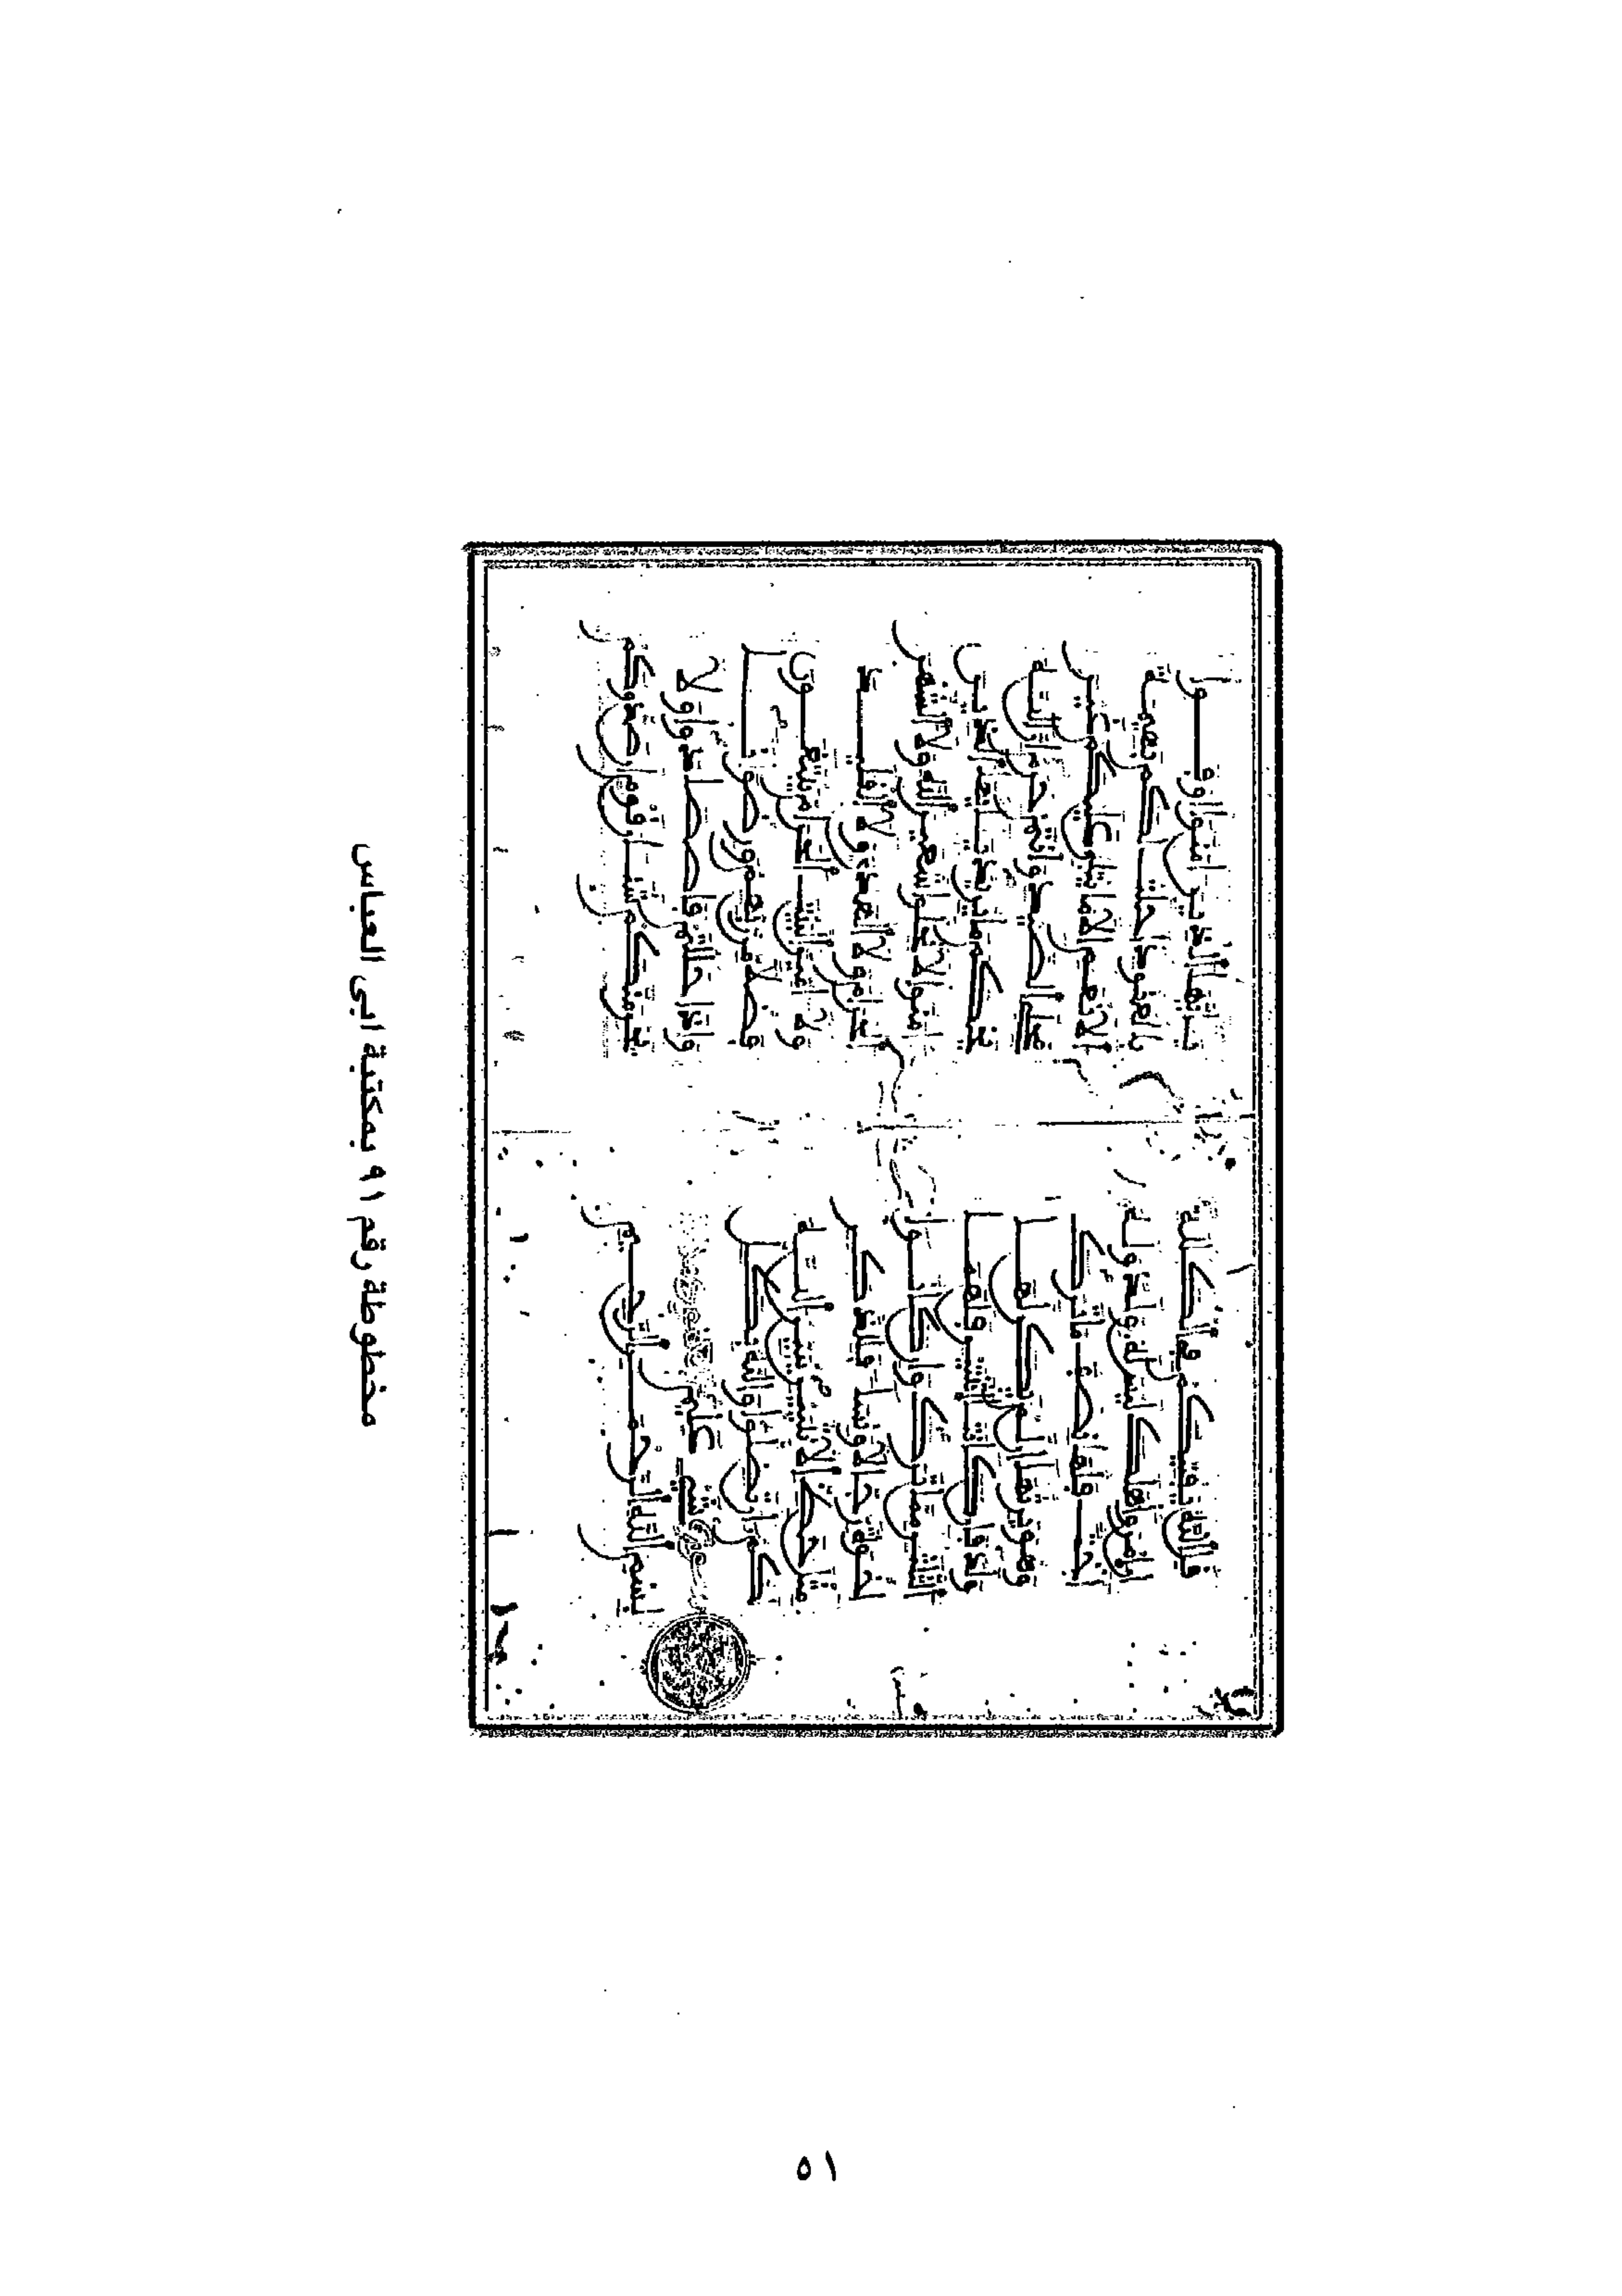 قل الله يفتيكم في الكللة
إن امرؤا هلك ليس له ولد وله
أخت فلها نصف ما ترك
وهو يرثها إن لم يكن لها
ولد فإن كانتا اثنتين فلهما
الثلثن مما ترك وإن كانوا
إخوة رجالا ونساء فللذكر
مثل حظ الانثيين يبين الله
لكم أن تضلوا والله بكل
شيء عليم
بسم الله الرحمن الرحيم
يأيها الذين ءامنوا أوفوا
بالعقود أحلت لكم بهيمة
الانعم إلا ما يتلى عليكم غير
محلي الصيد وأنتم حرم إن الله
يحكم ما يريد يأيها الذين
ءامنوا لا تحلوا شعئر الله ولا الشهر
الحرام ولا الهدي ولا القلئد
ولا ءامين البيت الحرام يبتغون
فضلا من ربهم ورضونا
وإذا حللتم فاصطادوا ولا
يجرمنكم شنئان قوم أن صدوكم
مخطوطة رقم ٩١ بمكتبة ابى العباس
٥١